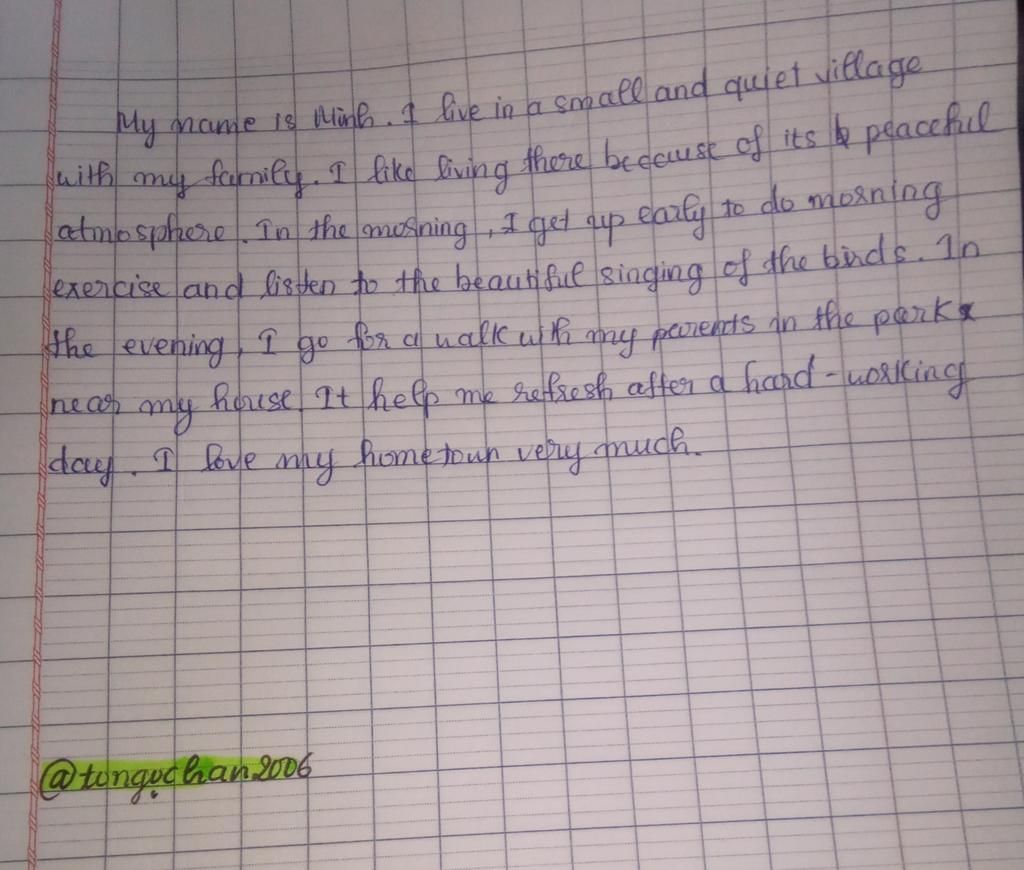 My name is Minh. I live in a small and quiet village
with my family. I like living there because of its peaceful
atmosphere. In the morning, I get up early to do morning
exercise and listen to the beautiful singing of the birds. In
the evening, I go for a walk with my parents in the park
near my house. It help me refresh after a hard-working
day. I love my hometown very much.
@tungochan2006